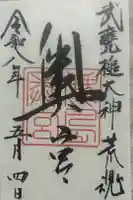 武甕槌大神 荒魂
奥宮
令和八年五月四日